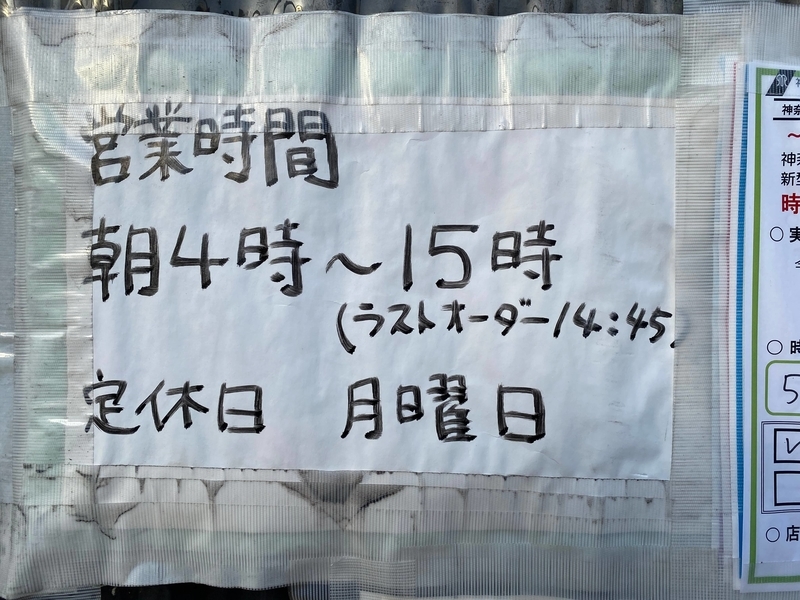 営業時間
朝4時～15時
(ラストオーダー14:45)
定休日 月曜日
神奈
神奈
新型
時
○ 実
○ 時
5
○ 店